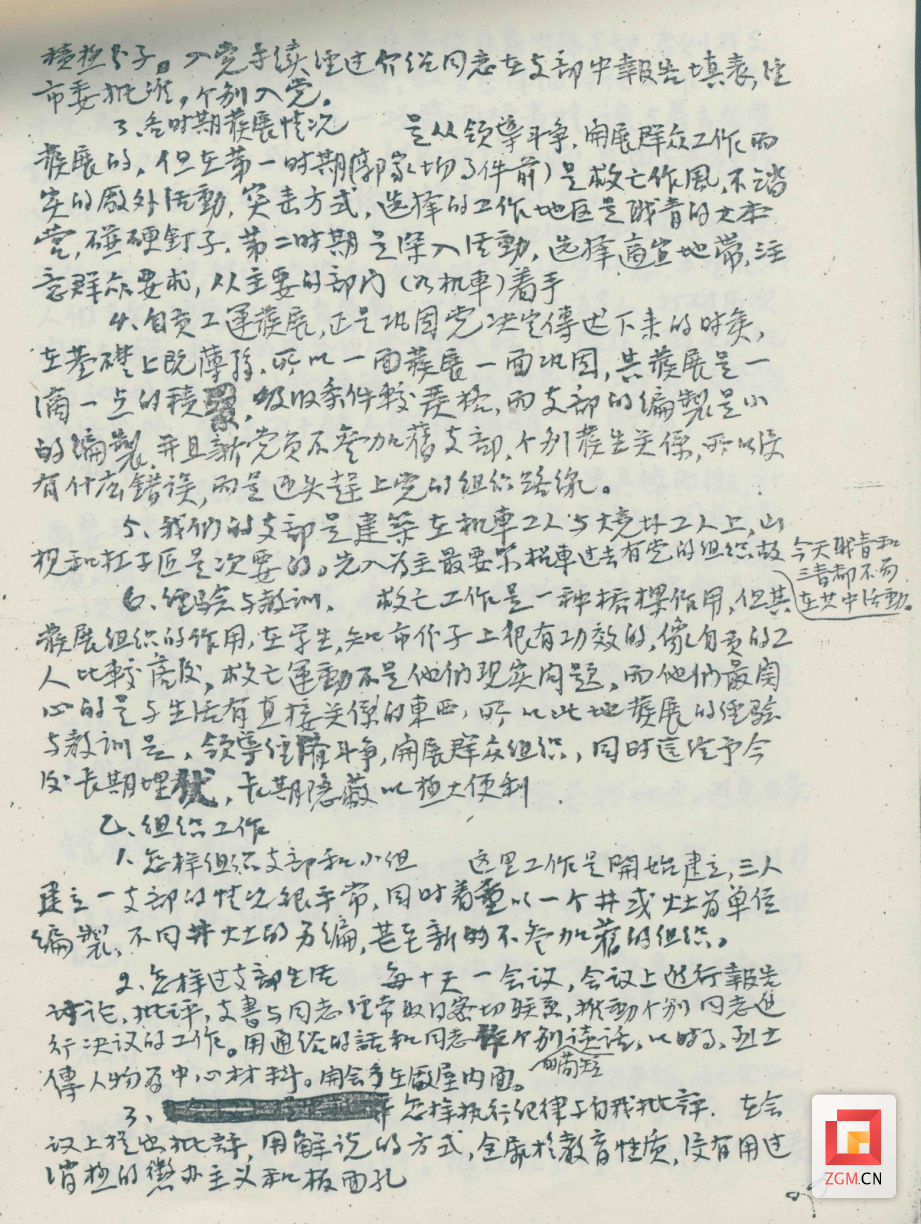 積极分子。入党手续経过介绍同志在支部中報告填表,经
市委批准,个别入党。
3、各时期發展情况 是从领導斗争,開展群众工作而
發展的,但在第一时期(郭家坳事件前)是救亡作風,不踏
实的厰外活動,突击方式,选择的工作地区是戝青的大本
营,碰硬釘子,第二时期是深入活動,选择適宜地帶,注
意群众要求,从主要的部门(如机車)着手
4、自贡工運發展,正是巩固党决定傳达下来的时矦,
在基礎上既薄弱,所以一面發展一面巩固,其發展是一
滴一点的積累,吸收条件較严格,而支部的編製是小
的編製,并且新党员不参加舊支部,个别發生关係,所以没
有什么錯误,而是迎头趕上党的组织路線。
5、我们的支部是建築在机車工人与燒井工人上,山
杠子匠是次要的。先入为主最要紧机車过去有党的组织故
今天戝青和
三青都不易
在其中活動。
6、经验与教訓、 救亡工作是一种桥樑作用,但其
發展组织的作用,在学生,知市份子上很有功效的,像自贡的工
人比較落后,救亡運動不是他们现实问题,而他们最関
心的是与生活有直接关係的東西,所以此地發展的经验
与教訓是,领导经济斗争,開展群众组织,同时這给予今
后长期埋伏,长期隐蔽以極大便利
乙、组织工作
1、怎样组织支部和小组 这里工作是開始建立,三人
建立一支部的情况很平常,同时着重以一个井或灶為单位
編製,不同井灶的另編,甚至新的不参加舊的组织。
2、怎样过支部生活 每十天一会议,会议上進行報告
讨论,批评,支書与同志经常取得密切联系,推動个别同志進
行决议的工作。用通俗的話和同志个别谈话,以时事、烈士
傳人物为中心材料。開会多在厰屋内面。
3、怎样执行纪律与自我批評. 在会
议上提出批評,用解说的方式,全屬於教育性质,没有用过
消極的懲办主义和板面孔
ZGM.CN